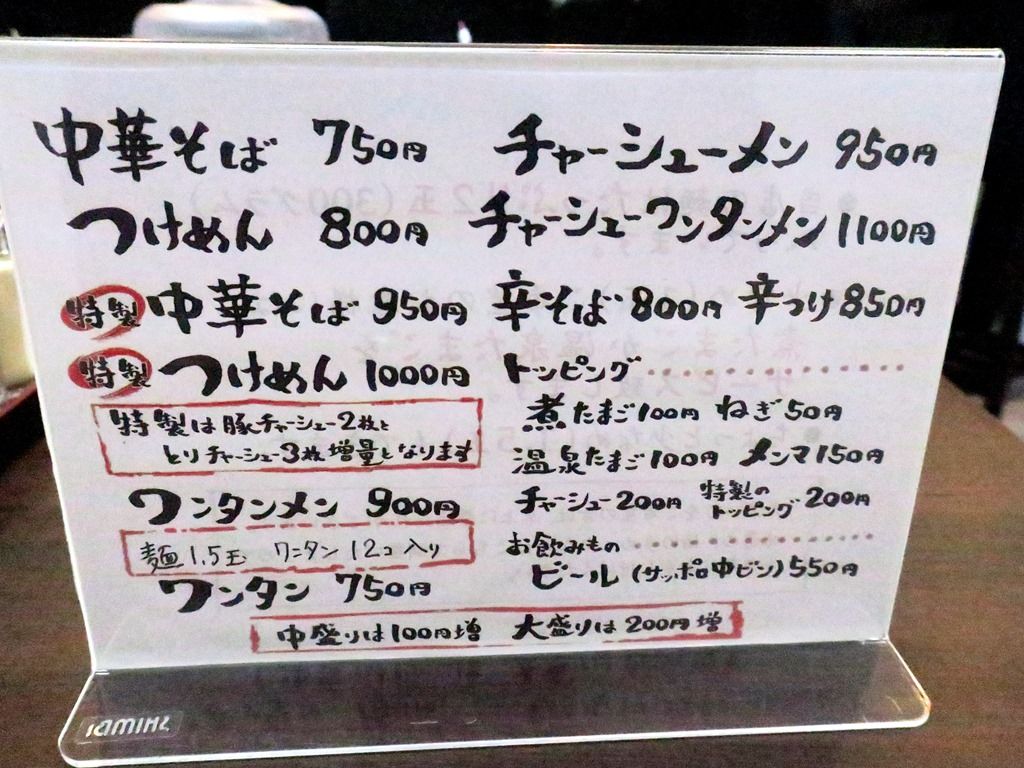 中華そば 750円
つけめん 800円
特製 中華そば 950円
特製 つけめん 1000円
特製は豚チャーシュー2枚と
とりチャーシュー3枚増量となります
ワンタンメン 900円
麺1.5玉 ワンタン12コ入り
ワンタン 750円
チャーシューメン 950円
チャーシューワンタンメン 1100円
辛そば 800円 辛つけ 850円
トッピング
煮たまご100円 ねぎ50円
温泉たまご100円 メンマ150円
チャーシュー200円 特製のトッピング200円
お飲みもの
ビール(サッポロ中ビン)550円
中盛りは100円増 大盛りは200円増